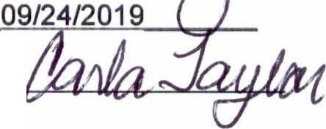 09/24/2019
Carla Taylor